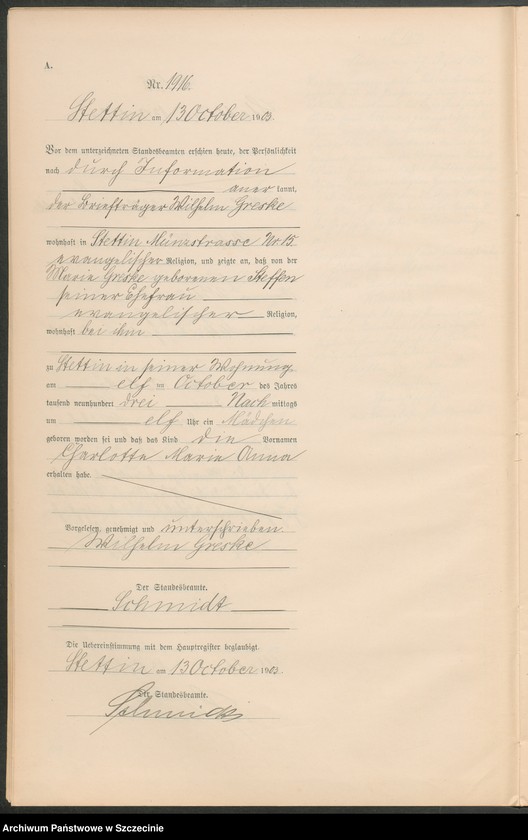 A.
Nr. 1916.
Stettin am 13 October 1903.
Vor dem unterzeichneten Standesbeamten erschien heute, der Persönlichkeit
nach durch Information
aner kannt,
der Briefträger Wilhelm Greske
wohnhaft in Stettin Münzstrasse No 15
evangelischer Religion, und zeigte an, daß von der
Marie Greske geborenen Steffen
seiner Ehefrau
evangelischer Religion,
wohnhaft bei ihm
zu Stettin in seiner Wohnung
am elf ten October des Jahres
tausend neunhundert drei Nach mittags
um elf Uhr ein Mädchen
geboren worden sei und daß das Kind die Vornamen
Charlotte Marie Anna
erhalten habe.
Vorgelesen, genehmigt und unterschrieben
Wilhelm Greske
Der Standesbeamte.
Schmidt
Die Uebereinstimmung mit dem Hauptregister beglaubigt.
Stettin am 13 October 1903.
Der Standesbeamte.
Schmidt
Archiwum Państwowe w Szczecinie